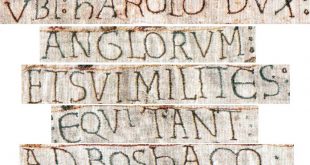 VBI: hAROLD DVX:
ANGLORVM:
ET SVI MILITES:
EQVITANT:
AD BOShAM: